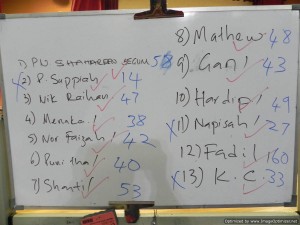 1) PN SHAHAREEN BEGUM 58
2) P. Suppiah 14
3) Nik Raihan 47
4) Menaka 38
5) Nor Faizah 42
6) Punitha 40
7) Shanti 53
8) Mathew 48
9) Gan 43
10) Hardip 49
11) Napisah 27
12) Fadil 60
13) K.C. 33
Optimized by www.ImageOptimizer.net